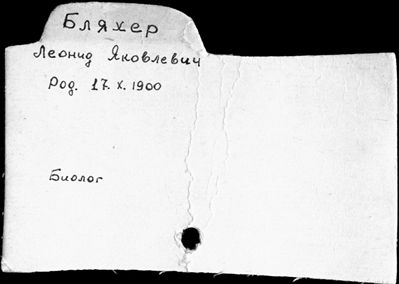 Бляхер
Леонид Яковлевич
Род. 17. X. 1900
Биолог